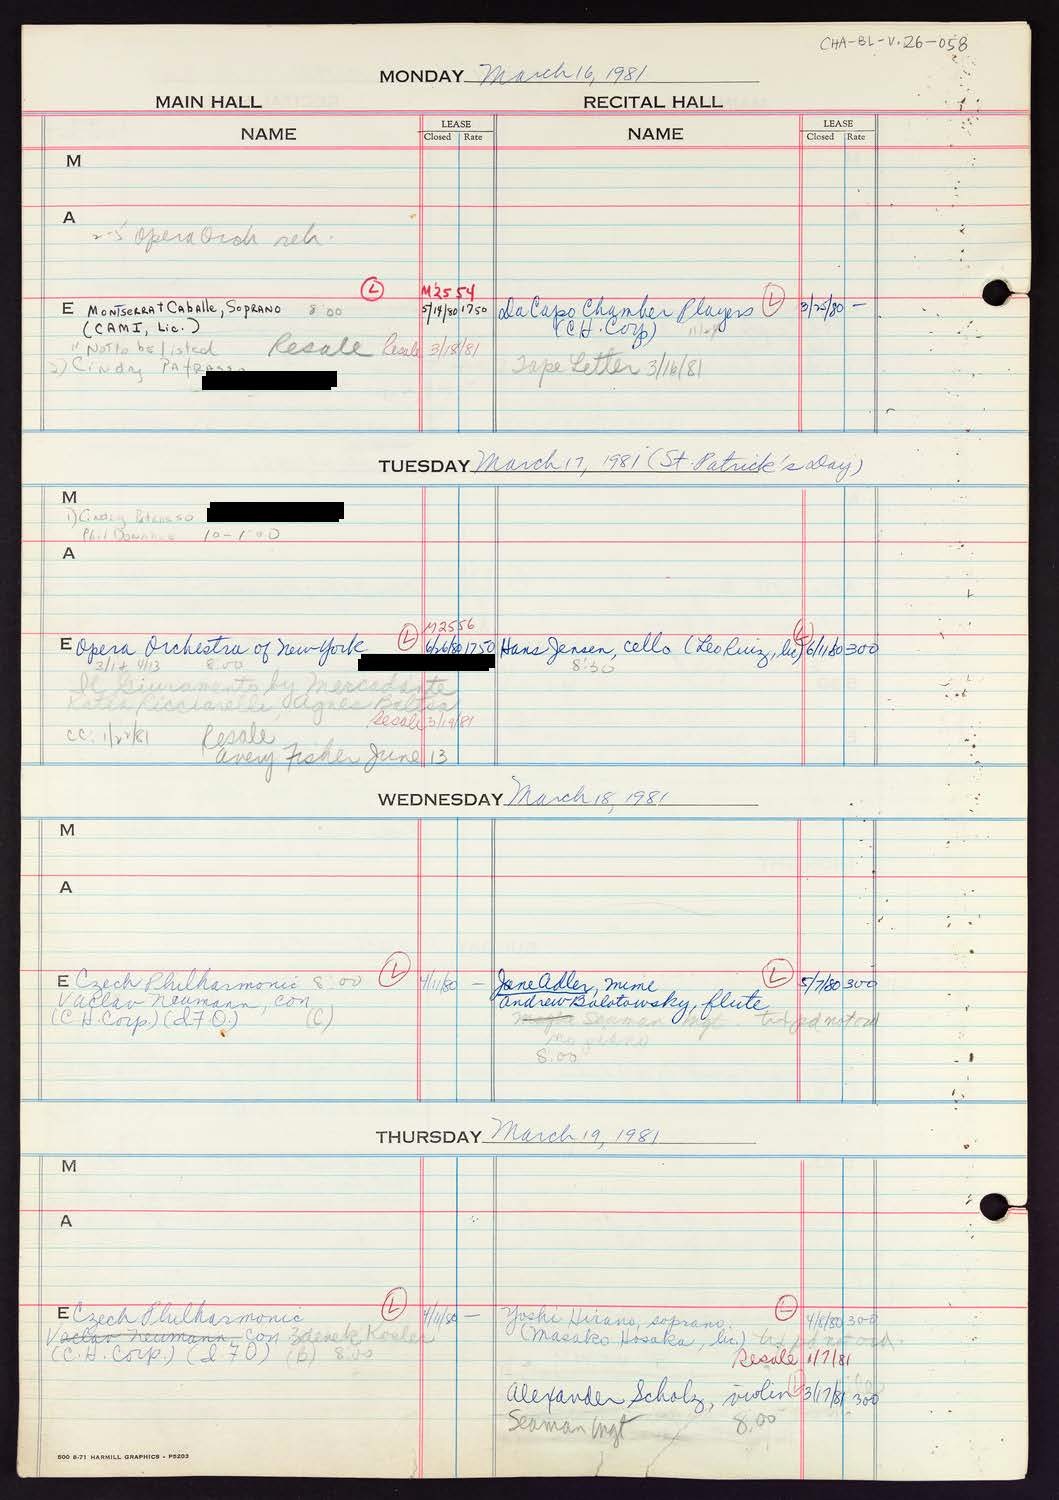 CHA-BL-V.26-058
MONDAY March 16, 1981
MAIN HALL
RECITAL HALL
NAME
LEASE
Closed Rate
NAME
LEASE
Closed Rate
M
A
2-5 Opera Orch reh.
E Montserrat Caballe, Soprano 8:00 L M2554 5/14/80 1750
(CAMI, Lic.)
1) Not to be listed Resale Resale 3/18/81
2) Cindy
Da Capo Chamber Players L 3/25/80 —
(C.H. Corp)
Tape Letter 3/16/81
TUESDAY March 17, 1981 (St Patrick's Day)
M
1) Cindy
Phil Donahue 10-1:00
A
E Opera Orchestra of New York L M2556 6/26/80 1750
3/1 + 4/13 8:00
Il Giuramento by Mercadante
Katia Ricciarelli, Agnes Baltsa
Resale 3/19/81
CC: 1/22/81 Resale
Avery Fisher June 13
Hans Jensen, cello (Leo Ruiz, lic) L 6/11/80 300
8:30
WEDNESDAY March 18, 1981
M
A
E Czech Philharmonic 8:00 L 4/11/80 —
Vaclav Neumann, con
(C.H. Corp) (d70) (C)
Jane Adler, mime L 5/7/80 300
Andrew Bolotowsky, flute
Seaman Mgt
no piano
8:00
THURSDAY March 19, 1981
M
A
E Czech Philharmonic L 4/11/80 —
Vaclav Neumann, con Zdenek Kosler
(C.H. Corp.) (d70) (B) 8:00
Yoshi Hirano, soprano. L 4/8/80 300
(Masako Hosaka, lic.)
Resale 1/7/81
Alexander Scholz, violin L 3/17/81 300
Seaman Mgt 8:00
500 8-71 HARMILL GRAPHICS - P5203